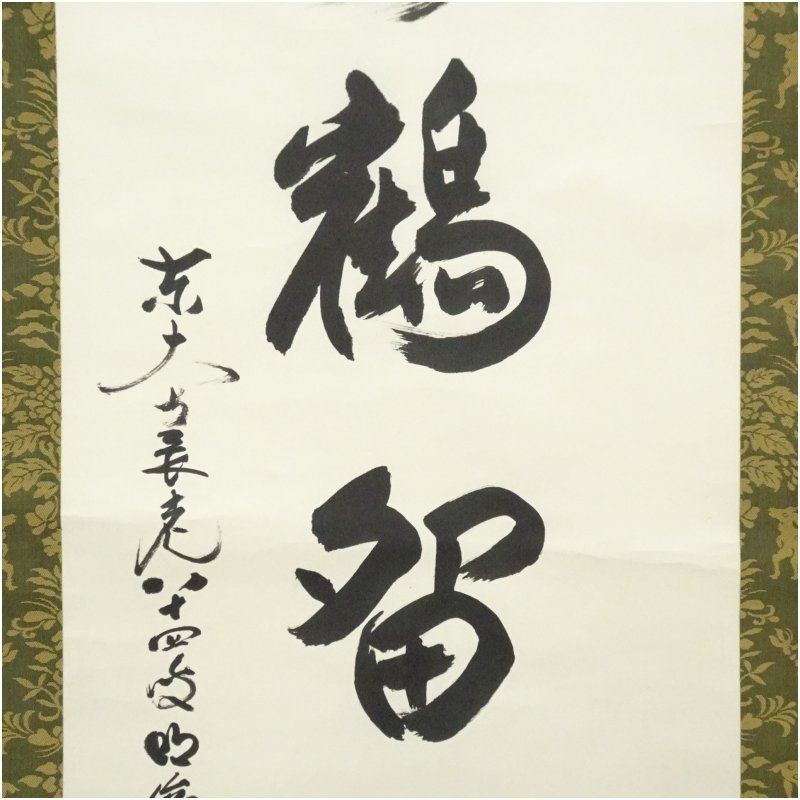 鶴留
東大寺長老八十四歳明